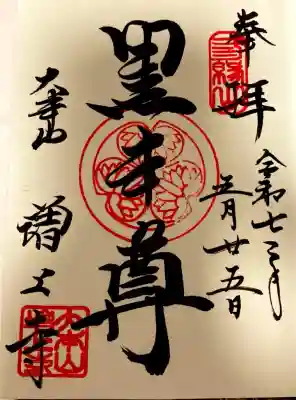 奉拝
三縁山
令和七年
五月廿五日
黒本尊
大本山
増上寺